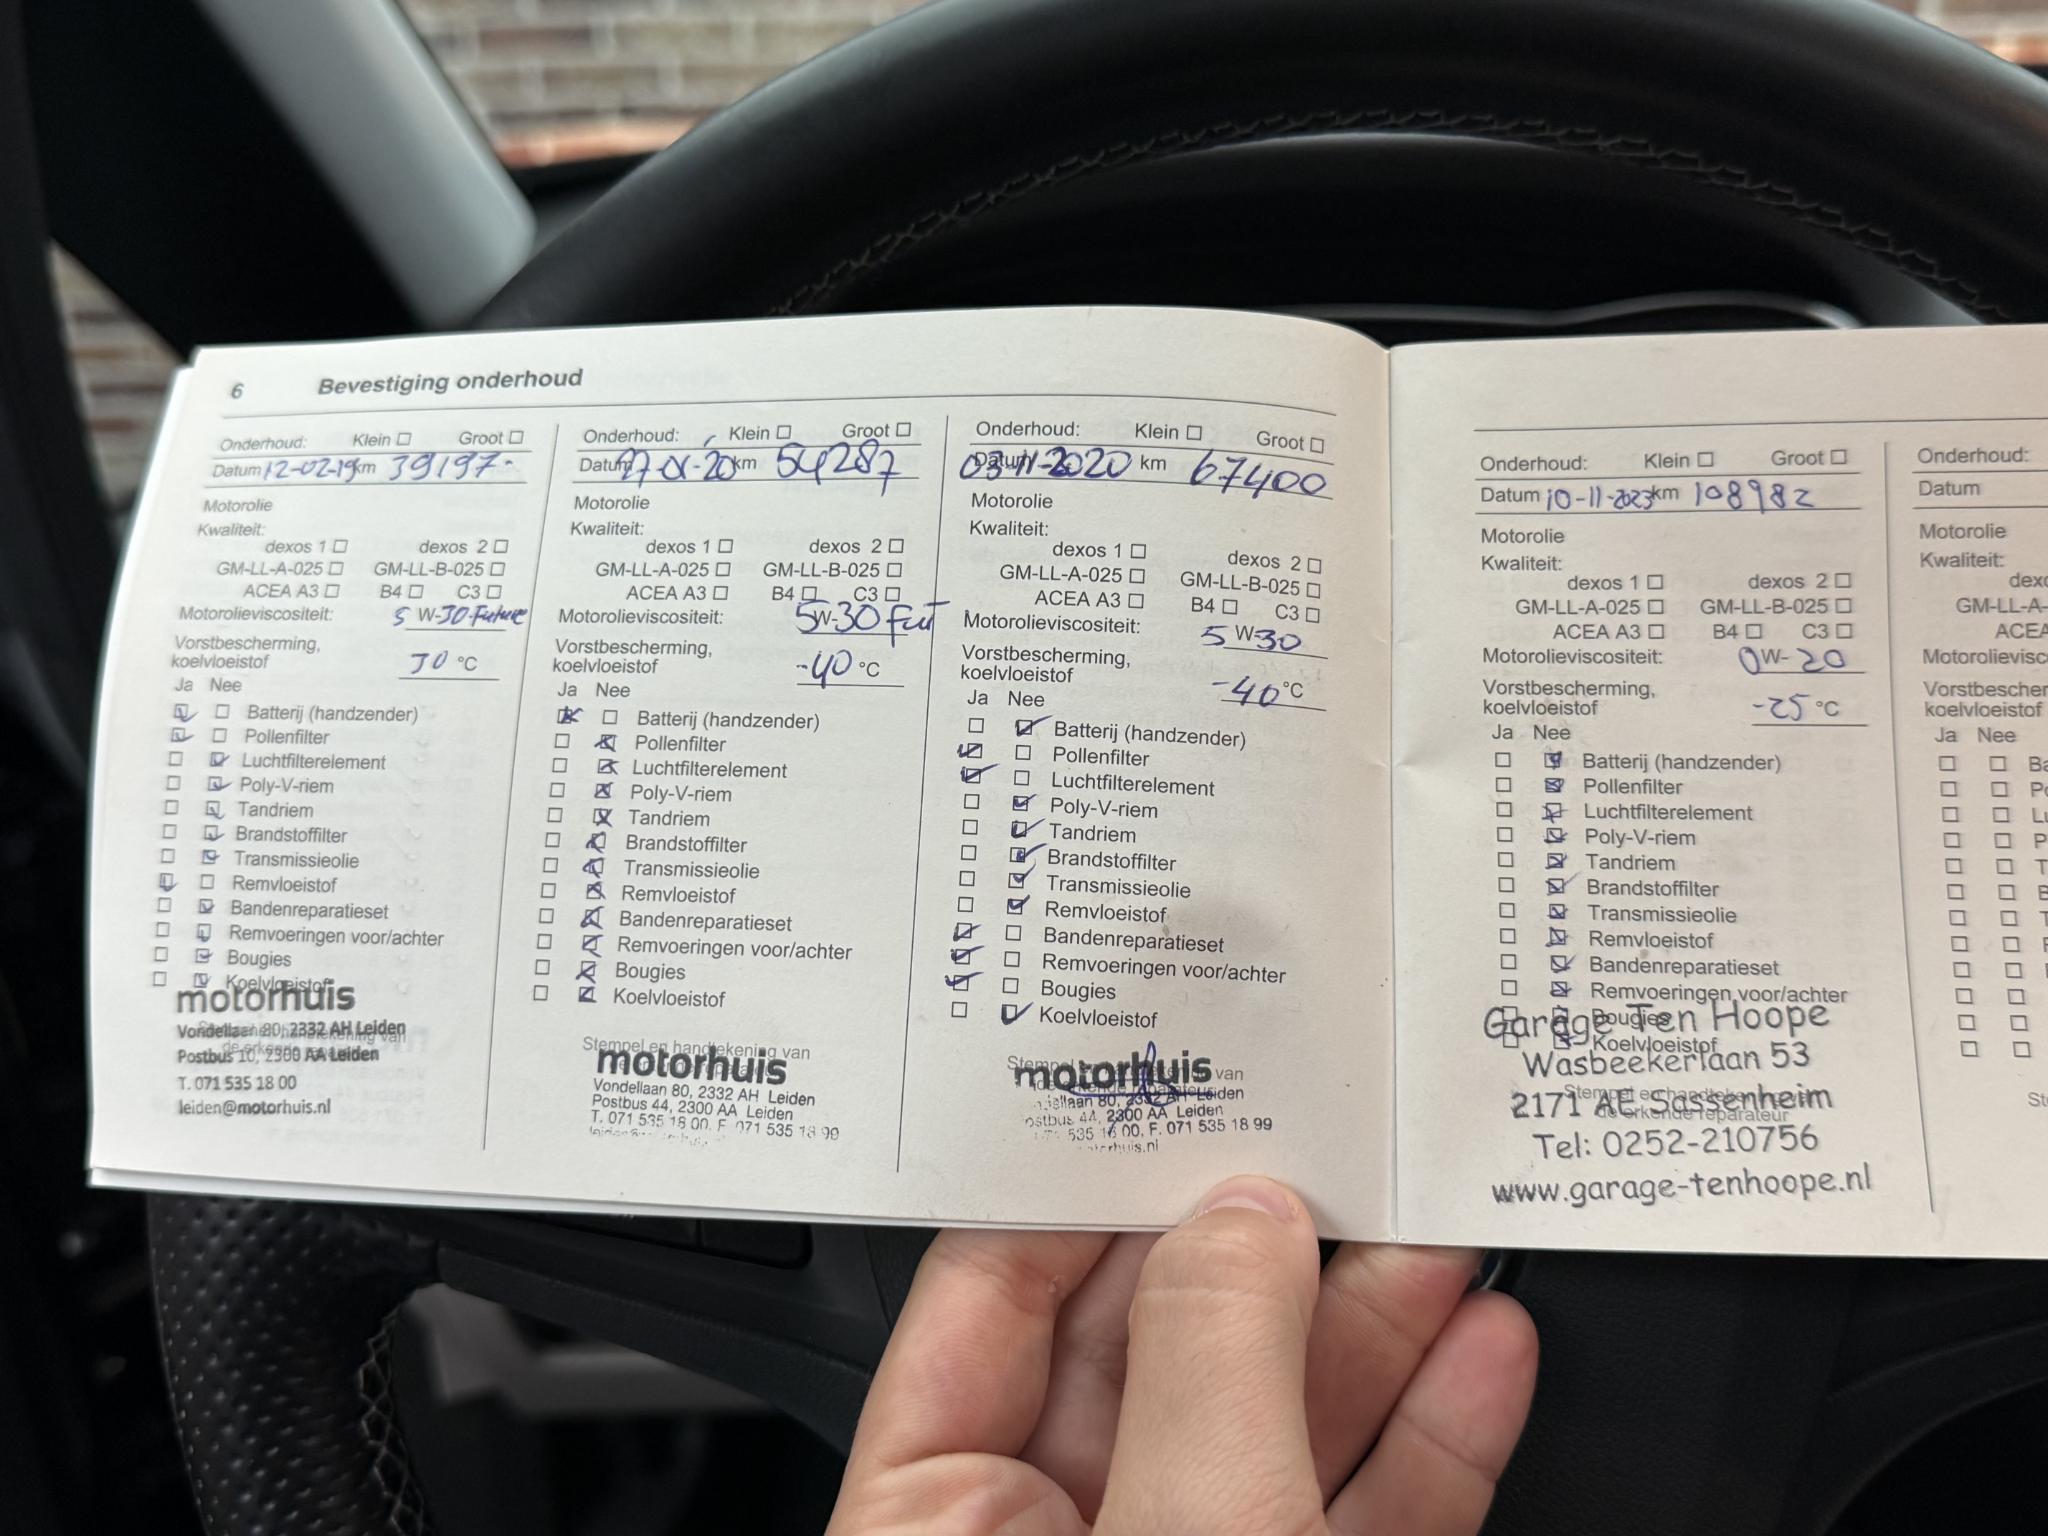 6 Bevestiging onderhoud
Onderhoud: Klein ☐ Groot ☐
Datum 12-02-19 km 39197-
Motorolie
Kwaliteit:
dexos 1 ☐ dexos 2 ☐
GM-LL-A-025 ☐ GM-LL-B-025 ☐
ACEA A3 ☐ B4 ☐ C3 ☐
Motorolieviscositeit: 5 W-30 Future
Vorstbescherming,
koelvloeistof 30 °C
Ja Nee
☑ ☐ Batterij (handzender)
☑ ☐ Pollenfilter
☐ ☑ Luchtfilterelement
☐ ☑ Poly-V-riem
☐ ☑ Tandriem
☐ ☑ Brandstoffilter
☐ ☑ Transmissieolie
☑ ☐ Remvloeistof
☐ ☑ Bandenreparatieset
☐ ☑ Remvoeringen voor/achter
☐ ☑ Bougies
☐ ☑ Koelvloeistof
motorhuis
Vondellaan 80, 2332 AH Leiden
Postbus 10, 2300 AA Leiden
T. 071 535 18 00
leiden@motorhuis.nl
Onderhoud: Klein ☐ Groot ☐
Datum km 54287
Motorolie
Kwaliteit:
dexos 1 ☐ dexos 2 ☐
GM-LL-A-025 ☐ GM-LL-B-025 ☐
ACEA A3 ☐ B4 ☐ C3 ☐
Motorolieviscositeit: 5W-30 Fut
Vorstbescherming,
koelvloeistof -40 °C
Ja Nee
☒ ☐ Batterij (handzender)
☐ ☒ Pollenfilter
☐ ☒ Luchtfilterelement
☐ ☒ Poly-V-riem
☐ ☒ Tandriem
☐ ☒ Brandstoffilter
☐ ☒ Transmissieolie
☐ ☒ Remvloeistof
☐ ☒ Bandenreparatieset
☐ ☒ Remvoeringen voor/achter
☐ ☒ Bougies
☐ ☒ Koelvloeistof
Stempel en handtekening van
motorhuis
Vondellaan 80, 2332 AH Leiden
Postbus 44, 2300 AA Leiden
T. 071 535 18 00, F. 071 535 18 99
Onderhoud: Klein ☐ Groot ☐
Datum 03-11-2020 km 67400
Motorolie
Kwaliteit:
dexos 1 ☐ dexos 2 ☐
GM-LL-A-025 ☐ GM-LL-B-025 ☐
ACEA A3 ☐ B4 ☐ C3 ☐
Motorolieviscositeit: 5 W-30
Vorstbescherming,
koelvloeistof -40 °C
Ja Nee
☐ ☑ Batterij (handzender)
☑ ☐ Pollenfilter
☑ ☐ Luchtfilterelement
☐ ☑ Poly-V-riem
☐ ☑ Tandriem
☐ ☑ Brandstoffilter
☐ ☑ Transmissieolie
☐ ☑ Remvloeistof
☑ ☐ Bandenreparatieset
☑ ☐ Remvoeringen voor/achter
☑ ☐ Bougies
☐ ☑ Koelvloeistof
motorhuis
80, 2332 AH Leiden
44, 2300 AA Leiden
535 18 00, F. 071 535 18 99
Onderhoud: Klein ☐ Groot ☐
Datum 10-11-2023 km 108982
Motorolie
Kwaliteit:
dexos 1 ☐ dexos 2 ☐
GM-LL-A-025 ☐ GM-LL-B-025 ☐
ACEA A3 ☐ B4 ☐ C3 ☐
Motorolieviscositeit: 0W-20
Vorstbescherming,
koelvloeistof -25 °C
Ja Nee
☐ ☑ Batterij (handzender)
☐ ☑ Pollenfilter
☐ ☑ Luchtfilterelement
☐ ☑ Poly-V-riem
☐ ☑ Tandriem
☐ ☑ Brandstoffilter
☐ ☑ Transmissieolie
☐ ☑ Remvloeistof
☐ ☑ Bandenreparatieset
☐ ☑ Remvoeringen voor/achter
☐ ☑ Bougies
☐ ☑ Koelvloeistof
Garage Ten Hoope
Wasbeekerlaan 53
Stempel en handtekening van
2171 AE Sassenheim
de erkende reparateur
Tel: 0252-210756
www.garage-tenhoope.nl
Onderhoud:
Datum
Motorolie
Kwaliteit:
Vorstbescher
koelvloeistof
Ja Nee